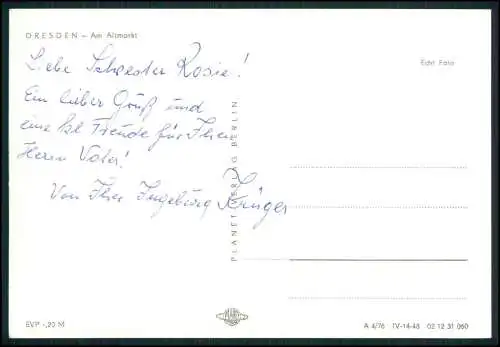 DRESDEN – Am Altmarkt
Echt Foto
Liebe Schwester Rosie!
Ein lieber Gruß und
eine kl. Freude für Ihren
Herrn Vater!
Von Ihrer Ingeburg Krüger
PLANET-VERLAG BERLIN
EVP -,20 M
PLANET
A 4/76 IV-14-48 02 12 31 060